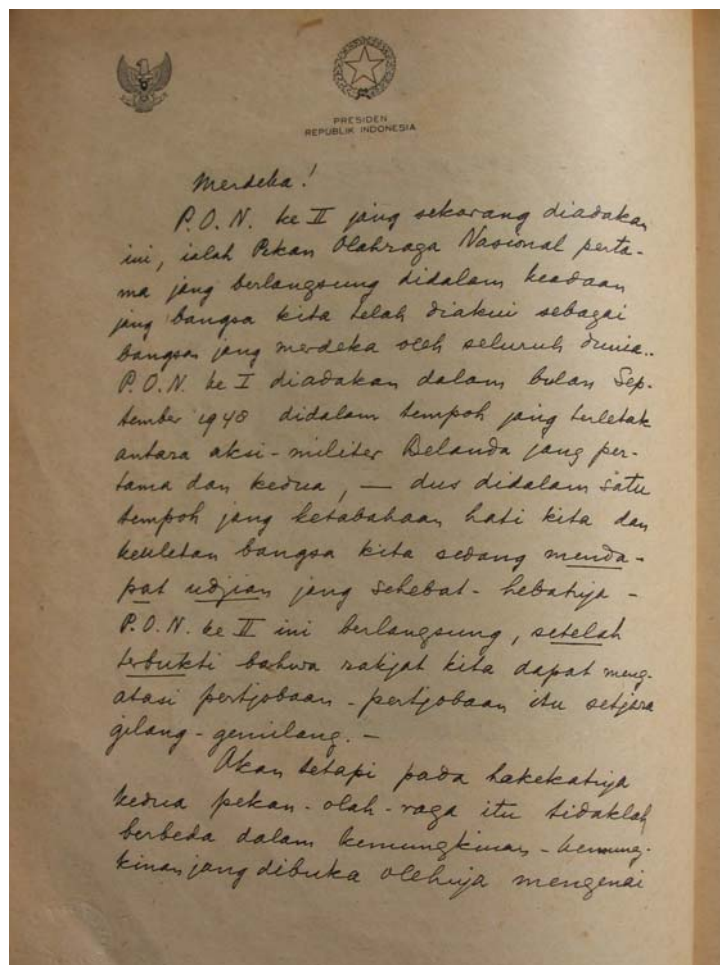 PRESIDEN
REPUBLIK INDONESIA
Merdeka!
P.O.N. ke II jang sekarang diadakan
ini, ialah Pekan Olahraga Nasional perta-
ma jang berlangsung didalam keadaan
jang bangsa kita telah diakui sebagai
bangsa jang merdeka oleh seluruh dunia..
P.O.N. ke I diadakan dalam bulan Sep-
tember 1948 didalam tempoh jang terletak
antara aksi-militer Belanda jang per-
tama dan kedua, — dus didalam satu
tempoh jang ketabahaan hati kita dan
keuletan bangsa kita sedang menda-
pat udjian jang sehebat-hebatnja –
P.O.N. ke II ini berlangsung, setelah
terbukti bahwa rakjat kita dapat meng-
atasi pertjobaan-pertjobaan itu setjara
gilang-gemilang. –
Akan tetapi pada hakekatnja
kedua pekan-olah-raga itu tidaklah
berbeda dalam kemungkinan-kemung-
kinan jang dibuka olehnja mengenai